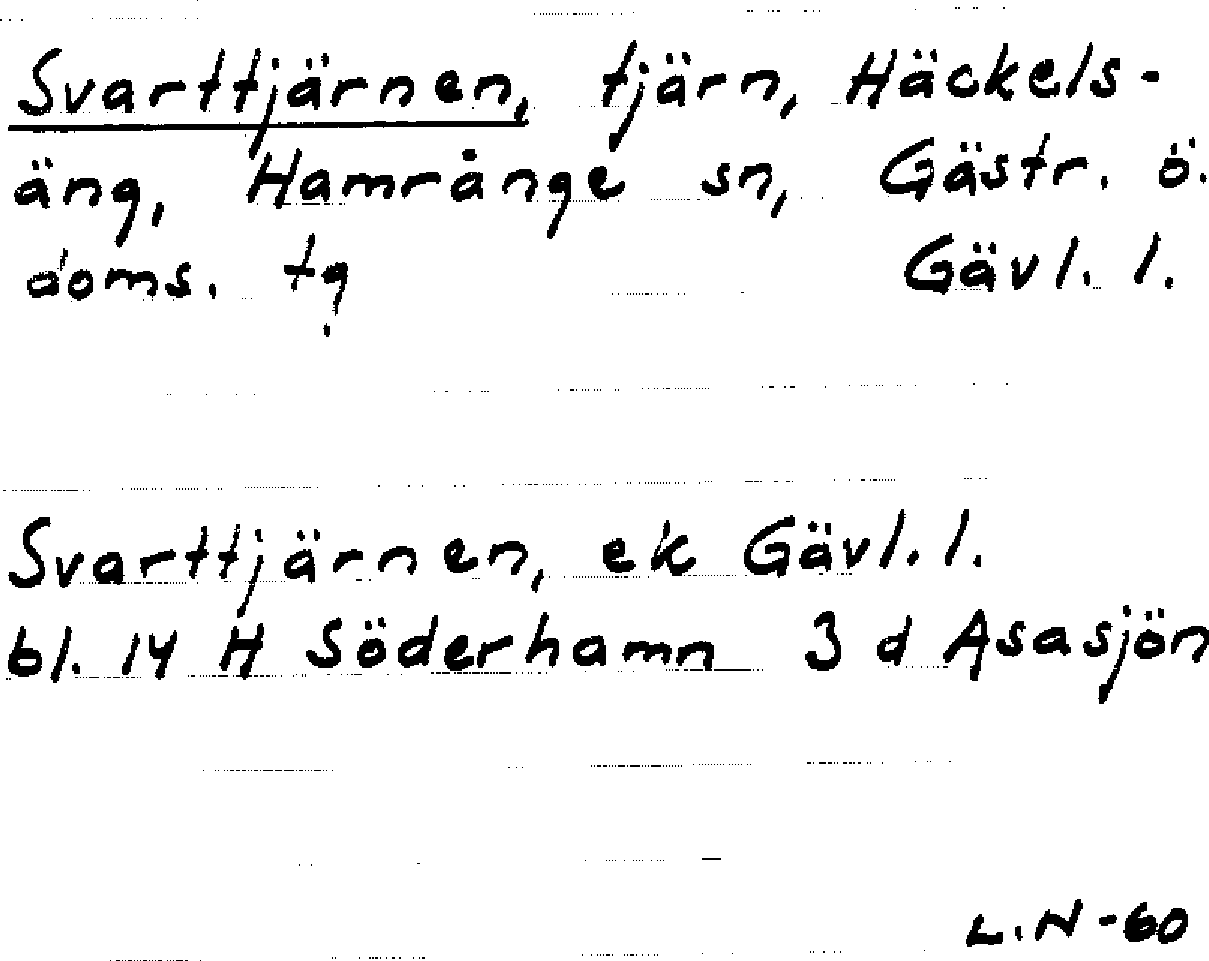 Svarttjärnen, tjärn, Häckels-
äng, Hamrånge sn, Gästr. ö.
doms. tg Gävl. l.
Svarttjärnen, ek Gävl. l.
bl. 14 H Söderhamn 3 d Asasjön
L.N -60